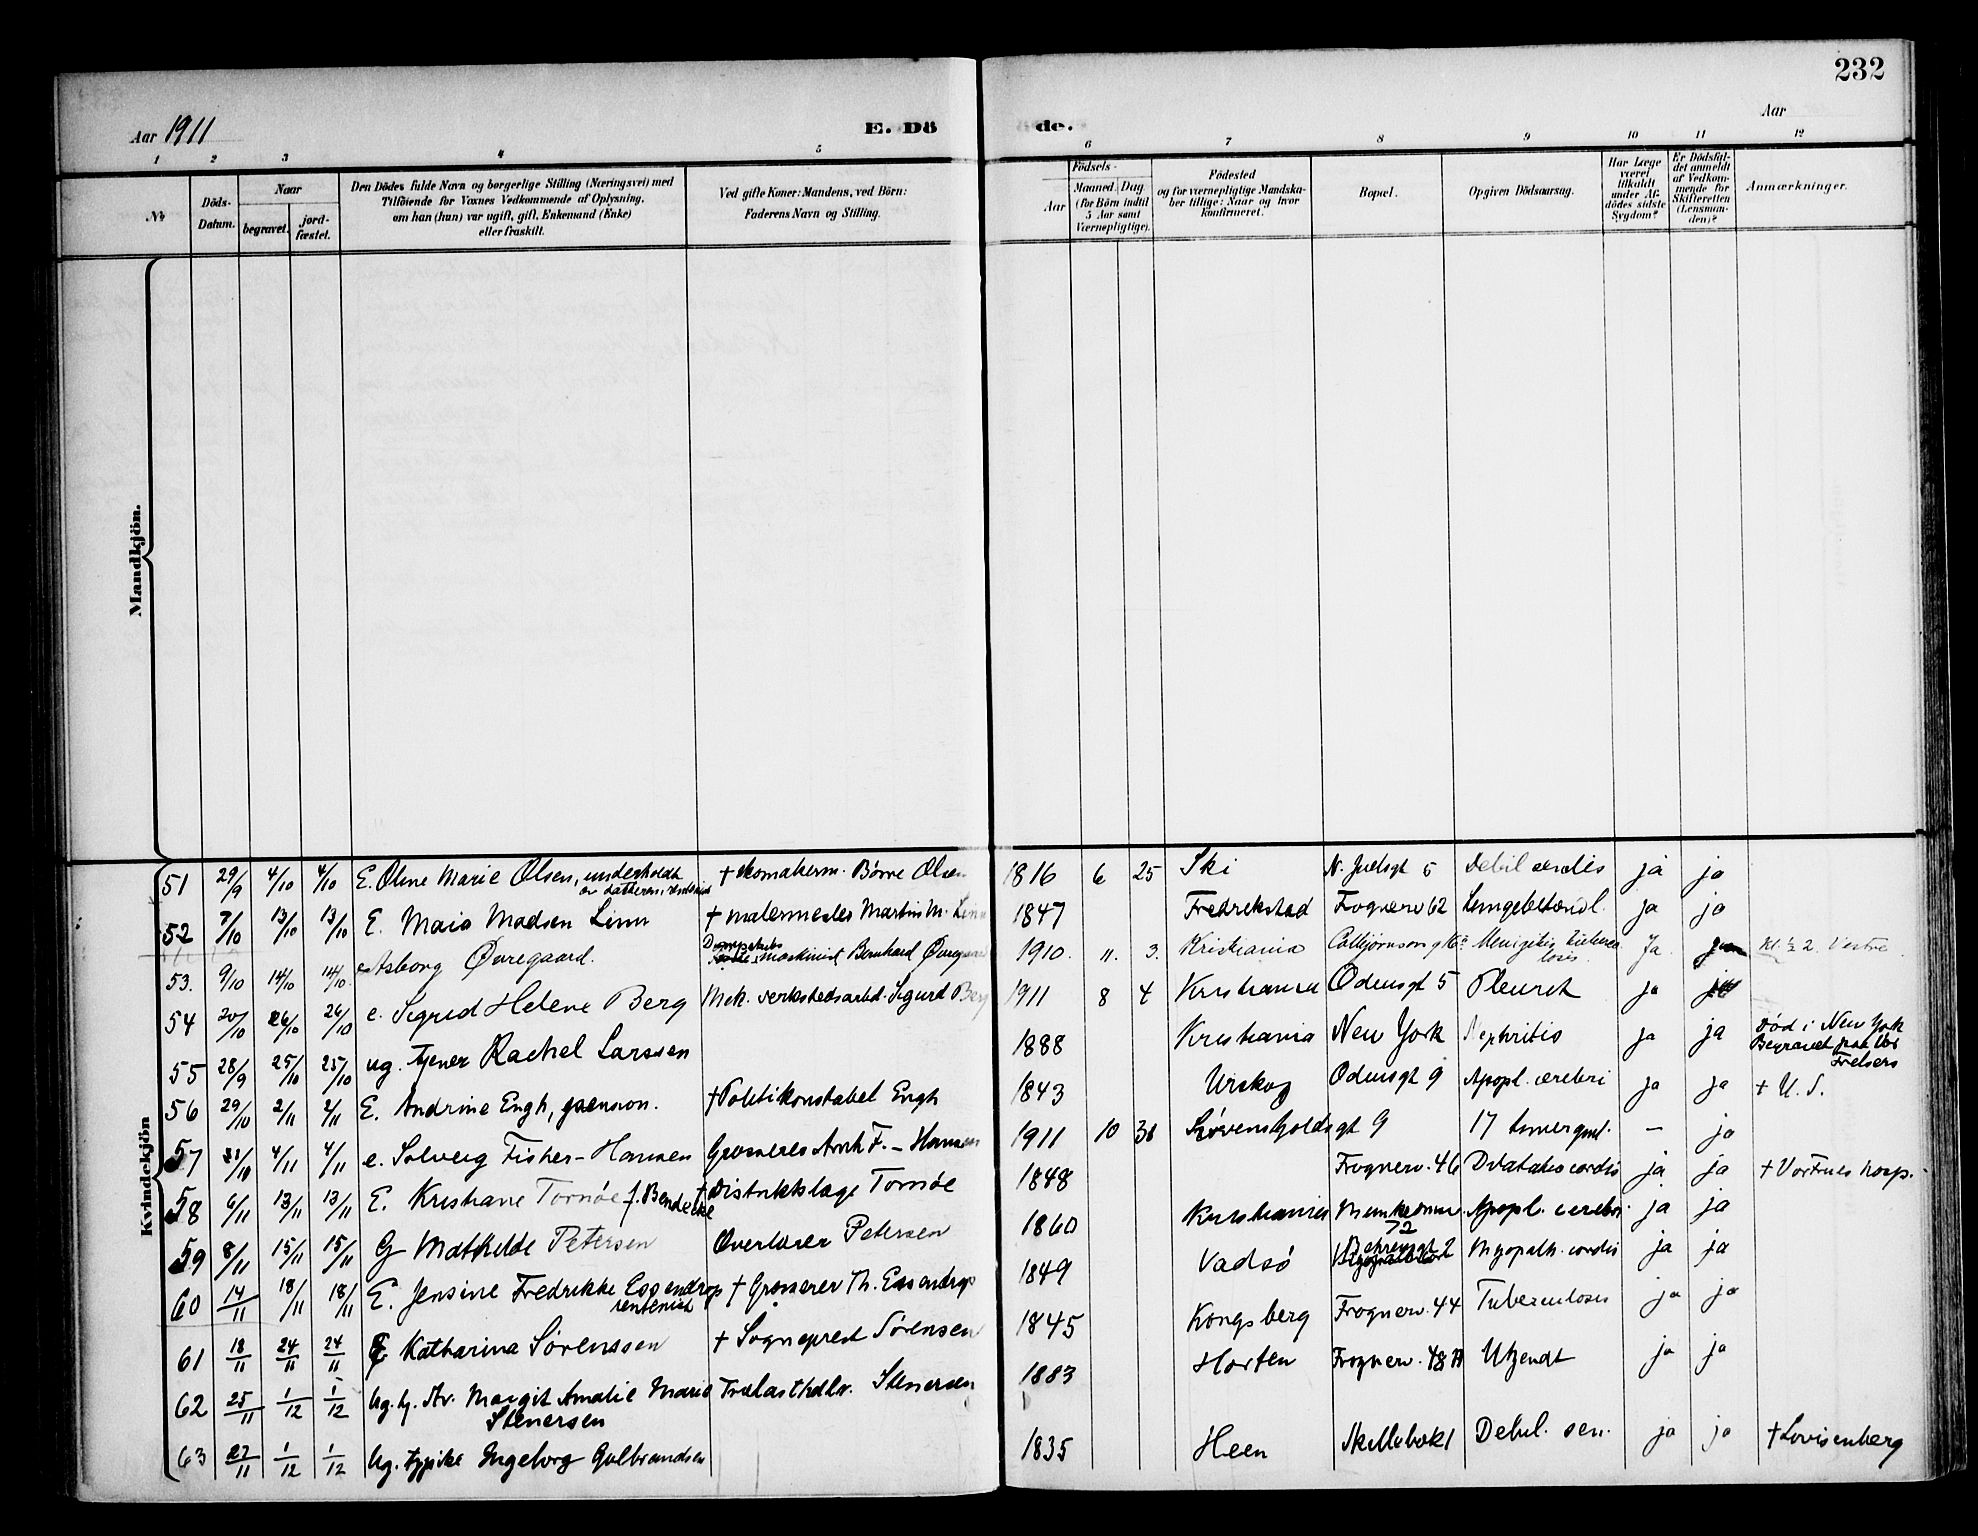 232
Aar 1911
E. Dö
de.
Aar
1 2 3 4 5 6 7 8 9 10 11 12
No
Döds-Datum.
Naar
begravet.
jord-fæstet.
Den Dödes fulde Navn og borgerlige Stilling (Næringsvei) med
Tilföiende for Voxnes Vedkommende af Oplysning,
om han (hun) var ugift, gift, Enkemand (Enke)
eller fraskilt.
Ved gifte Koner: Mandens, ved Börn:
Faderens Navn og Stilling.
Födsels-
Aar
Maaned. Dag
(for Börn indtil
5 Aar samt
Værnepligtige).
Födested
og for værnepligtige Mandska-
ber tillige: Naar og hvor
konfirmeret.
Bopæl.
Opgiven Dödsaarsag.
Har Læge
været
tilkaldt
under Af-
dödes sidste
Sygdom?
Er Dödsfal-
det anmeldt
af Vedkom-
mende for
Skifteretten
(Lensman-
den)?
Anmærkninger.
Mandkjön.
Kvindekjön
51 29/9 4/10 4/10 E. Oline Marie Olsen, underholdt av datteren, † skomakerm. Børre Olsen 1816 6 25 Ski N. Juelsgt 5 Debil. cordis ja ja
52 7/10 13/10 13/10 E. Maia Madsen Linn † malermester Martin M. Linn 1847 Fredrikstad Frognerv 62 Lungebetændl. ja ja
53. 9/10 14/10 14/10 e Asborg Øvregaard. maskinist Bernhard Øvregaard 1910. 11. 3. Kristiania Menigitis tuberculosis. Ja. Kl. 2. Vestre
54 20/10 26/10 26/10 e. Sigrid Helene Berg Mek. verkstedsarbd. Sigurd Berg 1911 8 4 Kristiania Odinsgt 5 Pleurit ja ja
55 28/9 25/10 25/10 ug. tjener Rachel Larssen 1888 Kristiania New York Nephritis ja ja Død i New York Begravet paa Vor Frelsers
56 29/10 2/11 2/11 E. Andrine Engh, pension. † Politikonstabel Engh 1843 Urskog Odinsgt 9 Apopl. cerebri ja ja † U. S.
57 31/10 4/11 4/11 e. Solveig Fisher-Hansen Grosseres F.-Hansen 1911 10 31 gt 9 17 timer gml. – ja
58 6/11 13/11 13/11 E. Kristiane Tornøe f. Bendeke † Distriktslæge Tornøe 1848 Frognerv. 46 Dilatatio cordis ja ja † Vor Frues hosp.
59 8/11 15/11 15/11 G Mathilde Petersen Overlærer Petersen 1860 Kristiania 72 Apopl. cerebri ja ja
60 14/11 18/11 18/11 E. Jensine Fredrikke Essendrop rentenist † Grosserer Th. Essendrop 1849 Vadsö Behrensgt 2 Myopath. cordis ja ja
61 18/11 24/11 24/11 E Katharina Sørenssen † Sogneprest Sörensen 1845 Kongsberg Frognerv. 44 Tuberculosis ja ja
62 25/11 1/12 1/12 Ug. hj. Av. Margit Amalie Marie Stenersen Trælasthdlr. Stenersen 1883 Horten Frognerv. 48 A Ukjendt ja ja
63 27/11 1/12 1/12 Ug. Ingeborg Gulbrandsen 1835 Heen Skillebæk 1 Debil. sen. ja ja † Lovisenberg